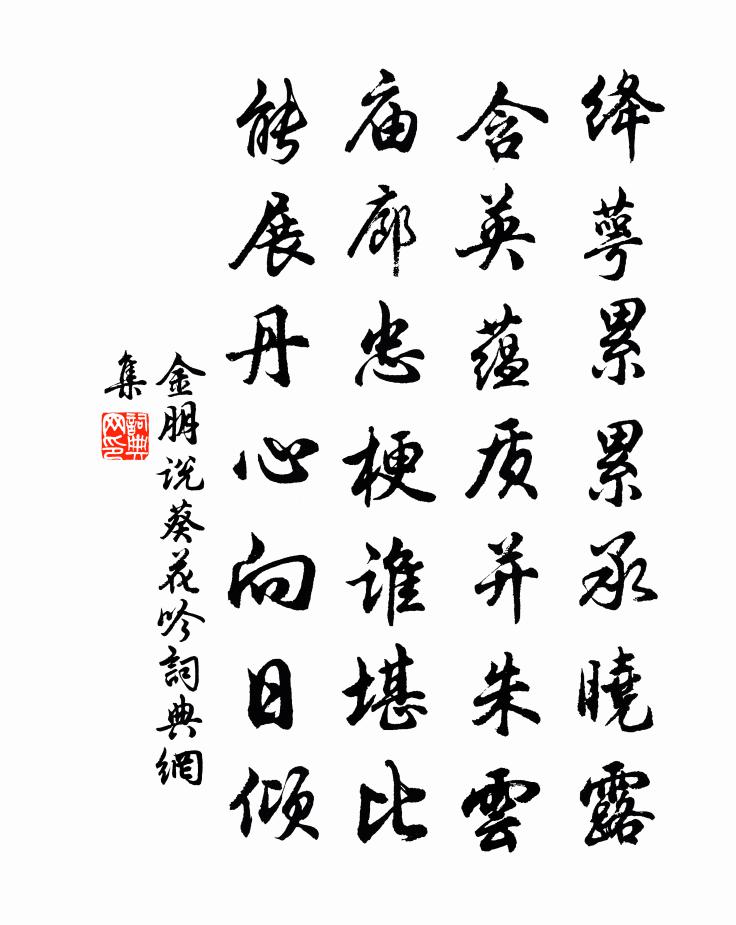 绛萼累累承曉露
含英蕴质并朱雲
庙廊忠梗谁堪比
能展丹心向日倾
金朋说葵花吟詞典網
集
詞典
网印